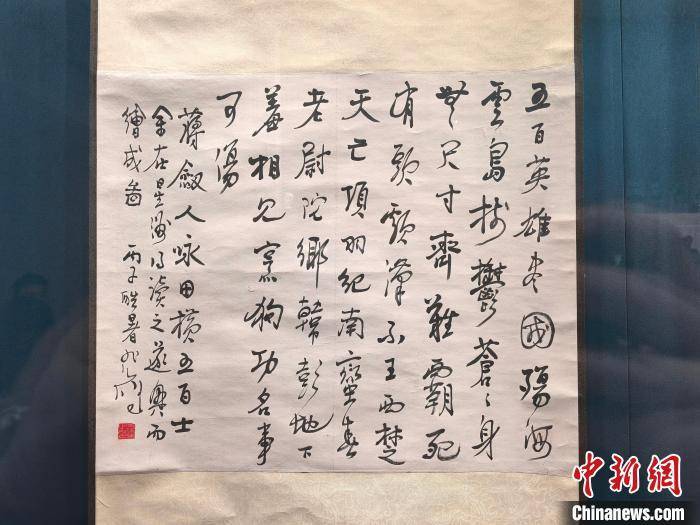 五百英雄國殤海
雲島樹鬱蒼〻身
無尺寸齊難霸死
有頭顱漢不王西楚
天亡項羽紀南蠻春
老尉陀鄉韓彭地下
羞相見烹狗功名事
可傷
薄劔人詠田橫五百士
余在星洲得讀之遂興而
繪成啚 丙子酷暑
中新网
Chinanews.com